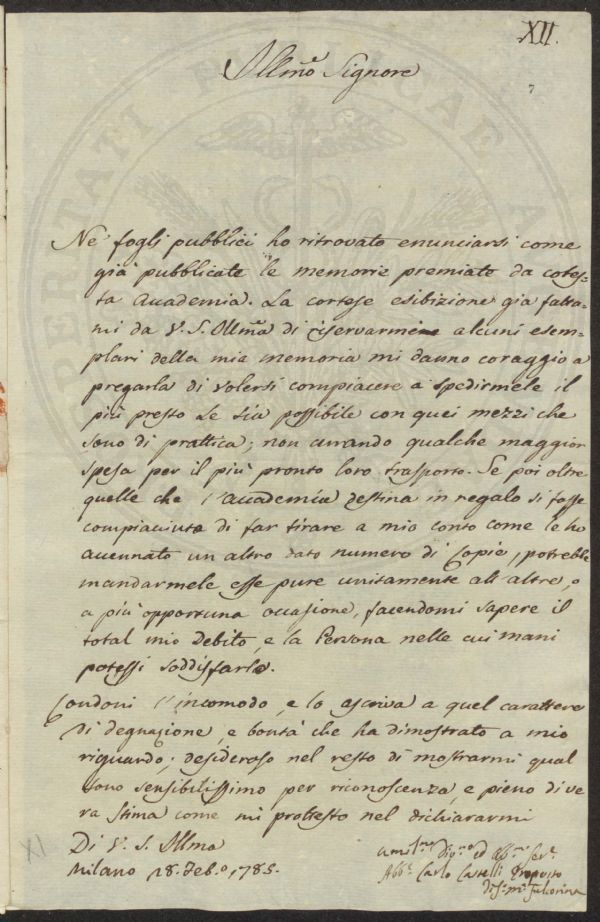 XII.
7
Illmo Signore
Ne' foglj pubblici ho ritrovato enunciarsi come
già pubblicate le memorie premiate da cotes=
ta Accademia. La cortese esibizione già fatta=
mi da V. S. Illma di riservarmene alcuni esem=
plari della mia memoria mi danno coraggio a
pregarla di volersi compiacere a spedirmele il
più presto Le sia possibile con quei mezzi che
sono di prattica; non curando qualche maggior
spesa per il più pronto loro trasporto. Se poi oltre
quelle che l'accademia destina in regalo si fosse
compiaciuta di far tirare a mio conto come le ho
accennato un altro dato numero di Copie, potrebbe
mandarmele esse pure unitamente all'altre, o
a più opportuna occasione, facendomi sapere il
total mio Debito, e la Persona nelle cui mani
potessi soddisfarlo.
Condoni l'incomodo, e lo ascriva a quel carattere
di degnazione, e bontà che ha dimostrato a mio
riguardo; desideroso nel resto di mostrarmi qual
sono sensibilissimo per riconoscenza, e pieno di ve
ra stima come mi protesto nel dichiararmi
Di V. S. Illma
Milano 18. Feb.o 1785.
umilmo ed Serv.
Abb.e Carlo Castelli Proposto
di S.a M.a Fulcorina
XI